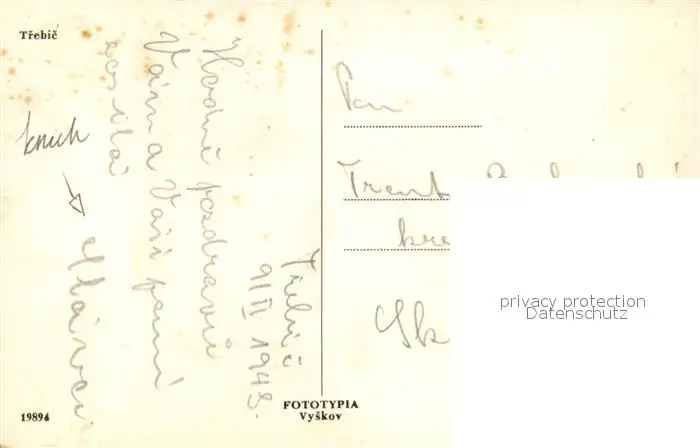 Třebíč
Hodně pozdravů
Vám a Vaší paní
zasílá
knih
Třebíč
9/II 1948.
Pan
Sk
privacy protection
Datenschutz
19894
FOTOTYPIA
Vyškov